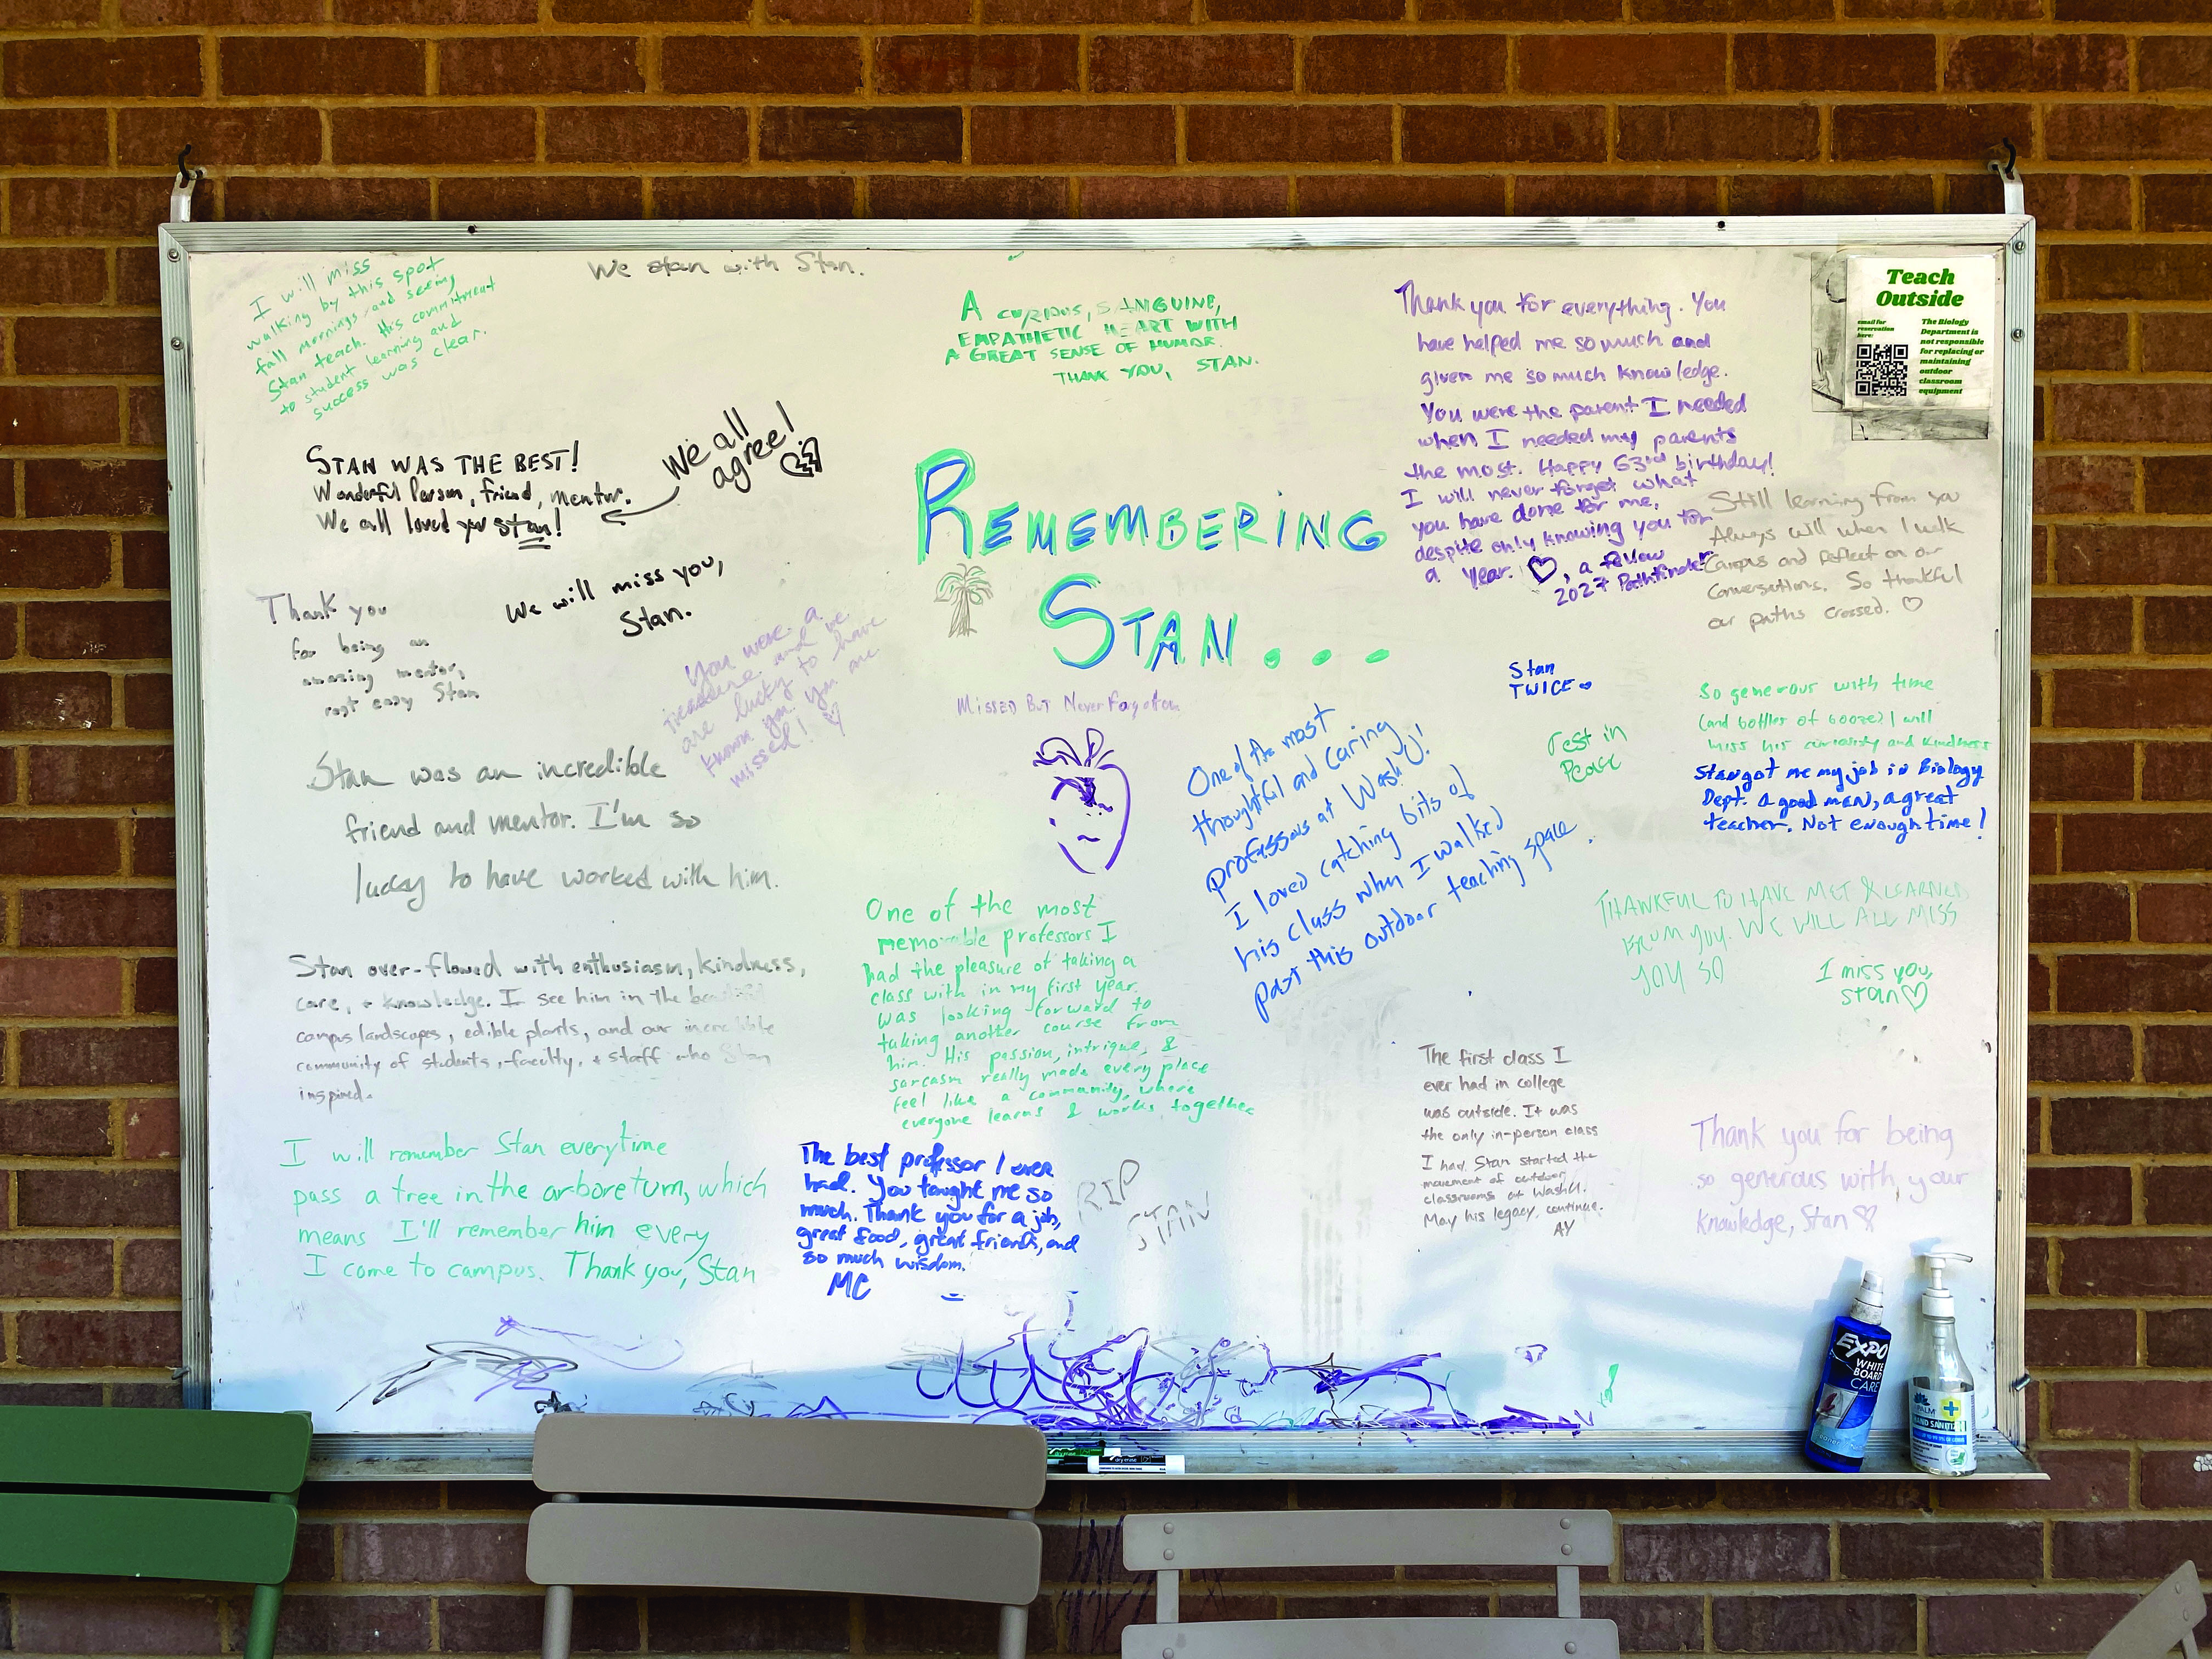 I will miss
walking by this spot
fall mornings and seeing
Stan teach. His commitment
to student learning and
success was clear.
We stan with Stan.
A CURIOUS, SANGUINE,
EMPATHETIC HEART WITH
A GREAT SENSE OF HUMOR.
THANK YOU, STAN.
Thank you for everything. You
have helped me so much and
given me so much knowledge.
You were the parent I needed
when I needed my parents
the most. Happy 63rd birthday!
I will never forget what
you have done for me,
despite only knowing you for
a year. ♡, a fellow
2027 Pathfinder
Teach
Outside
email for
reservation
here:
The Biology
Department is
not responsible
for replacing or
maintaining
outdoor
classroom
equipment
STAN WAS THE BEST!
Wonderful Person, friend, mentor.
We all loved you stan!
We all
agree!
REMEMBERING
STAN...
Still learning from you
Always will when I walk
Campus and reflect on our
Conversations. So thankful
our paths crossed. ♡
We will miss you,
Stan.
Thank you
for being an
amazing mentor,
rest easy Stan
You were a
treasure and we
are lucky to have
known you. You are
missed! ♡
MISSED BUT Never Forgotten
Stan
TWICE
rest in
Peace
So generous with time
(and bottles of booze) I will
miss his curiosity and kindness
Stan got me my job in Biology
Dept. A good man, a great
teacher. Not enough time!
Stan was an incredible
friend and mentor. I'm so
lucky to have worked with him.
One of the most
thoughtful and caring
professors at Wash U!
I loved catching bits of
his class when I walked
past this outdoor teaching space.
THANKFUL TO HAVE MET & LEARNED
FROM YOU. WE WILL ALL MISS
YOU SO
I miss you,
Stan ♡
Stan over-flowed with enthusiasm, kindness,
care, + knowledge. I see him in the beautiful
campus landscapes, edible plants, and our incredible
community of students, faculty, + staff who Stan
inspired.
One of the most
memorable professors I
had the pleasure of taking a
class with in my first year.
Was looking forward to
taking another course from
him. His passion, intrigue, &
sarcasm really made every place
feel like a community, where
everyone learns & works together
The first class I
ever had in college
was outside. It was
the only in-person class
I had. Stan started the
movement of outdoor
classrooms at WashU.
May his legacy continue.
AY
I will remember Stan everytime
pass a tree in the arboretum, which
means I'll remember him every
I come to campus. Thank you, Stan
The best professor I ever
had. You taught me so
much. Thank you for a job,
great food, great friends, and
so much wisdom.
MC
RIP
STAN
Thank you for being
so generous with your
knowledge, Stan ♡
EXPO
WHITE
BOARD
CARE
PALM
HAND SANITIZER